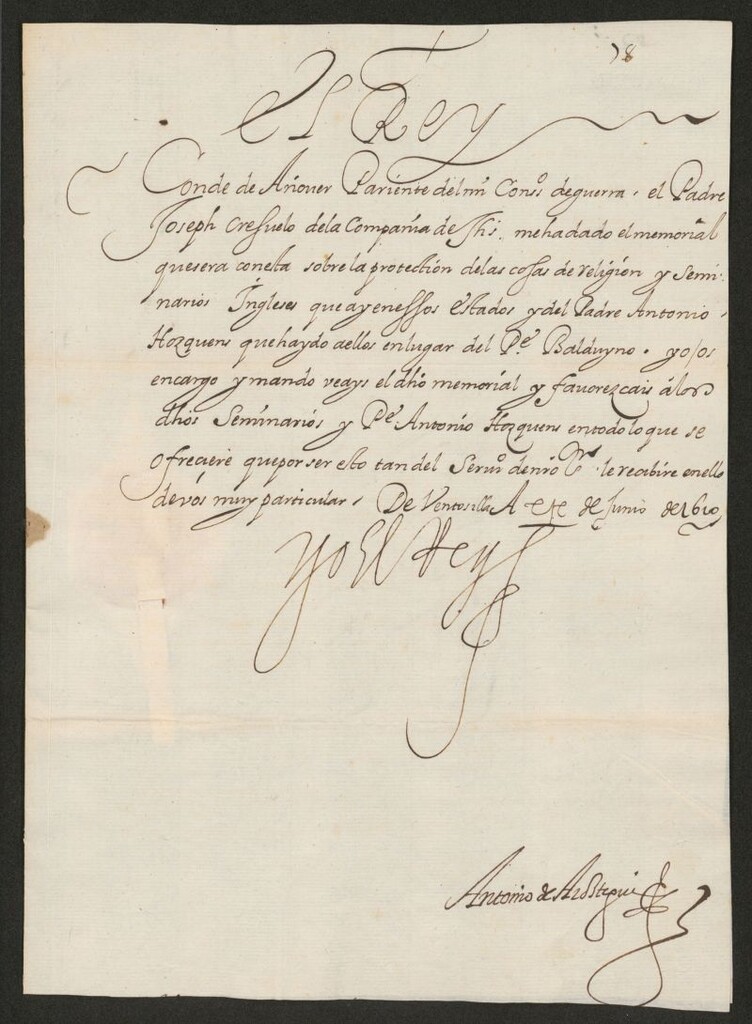 78
El Rey
Conde de Añover Pariente del mi Cons.º de guerra. el Padre
Joseph Cresuelo dela Compañia de Jhs. mehadado el memorial
quesera conesta sobrela protection delas cosas de religion y Semi-
narios Ingleses que ay enessos estados y del Padre Antonio
Hozquens quehaydo aellos enlugar del P.e Balduyno. yo os
encargo y mando veays el dho memorial y favorezcais álos
dhos Seminarios y P.e Antonio Hozquens entodoloque se
ofreciere queporser esto tandel Seruº denro S.r le recibire enello
devos muy particular. De Ventosilla A de Junio de1610
Yo El Rey
Antonio de Arostegui